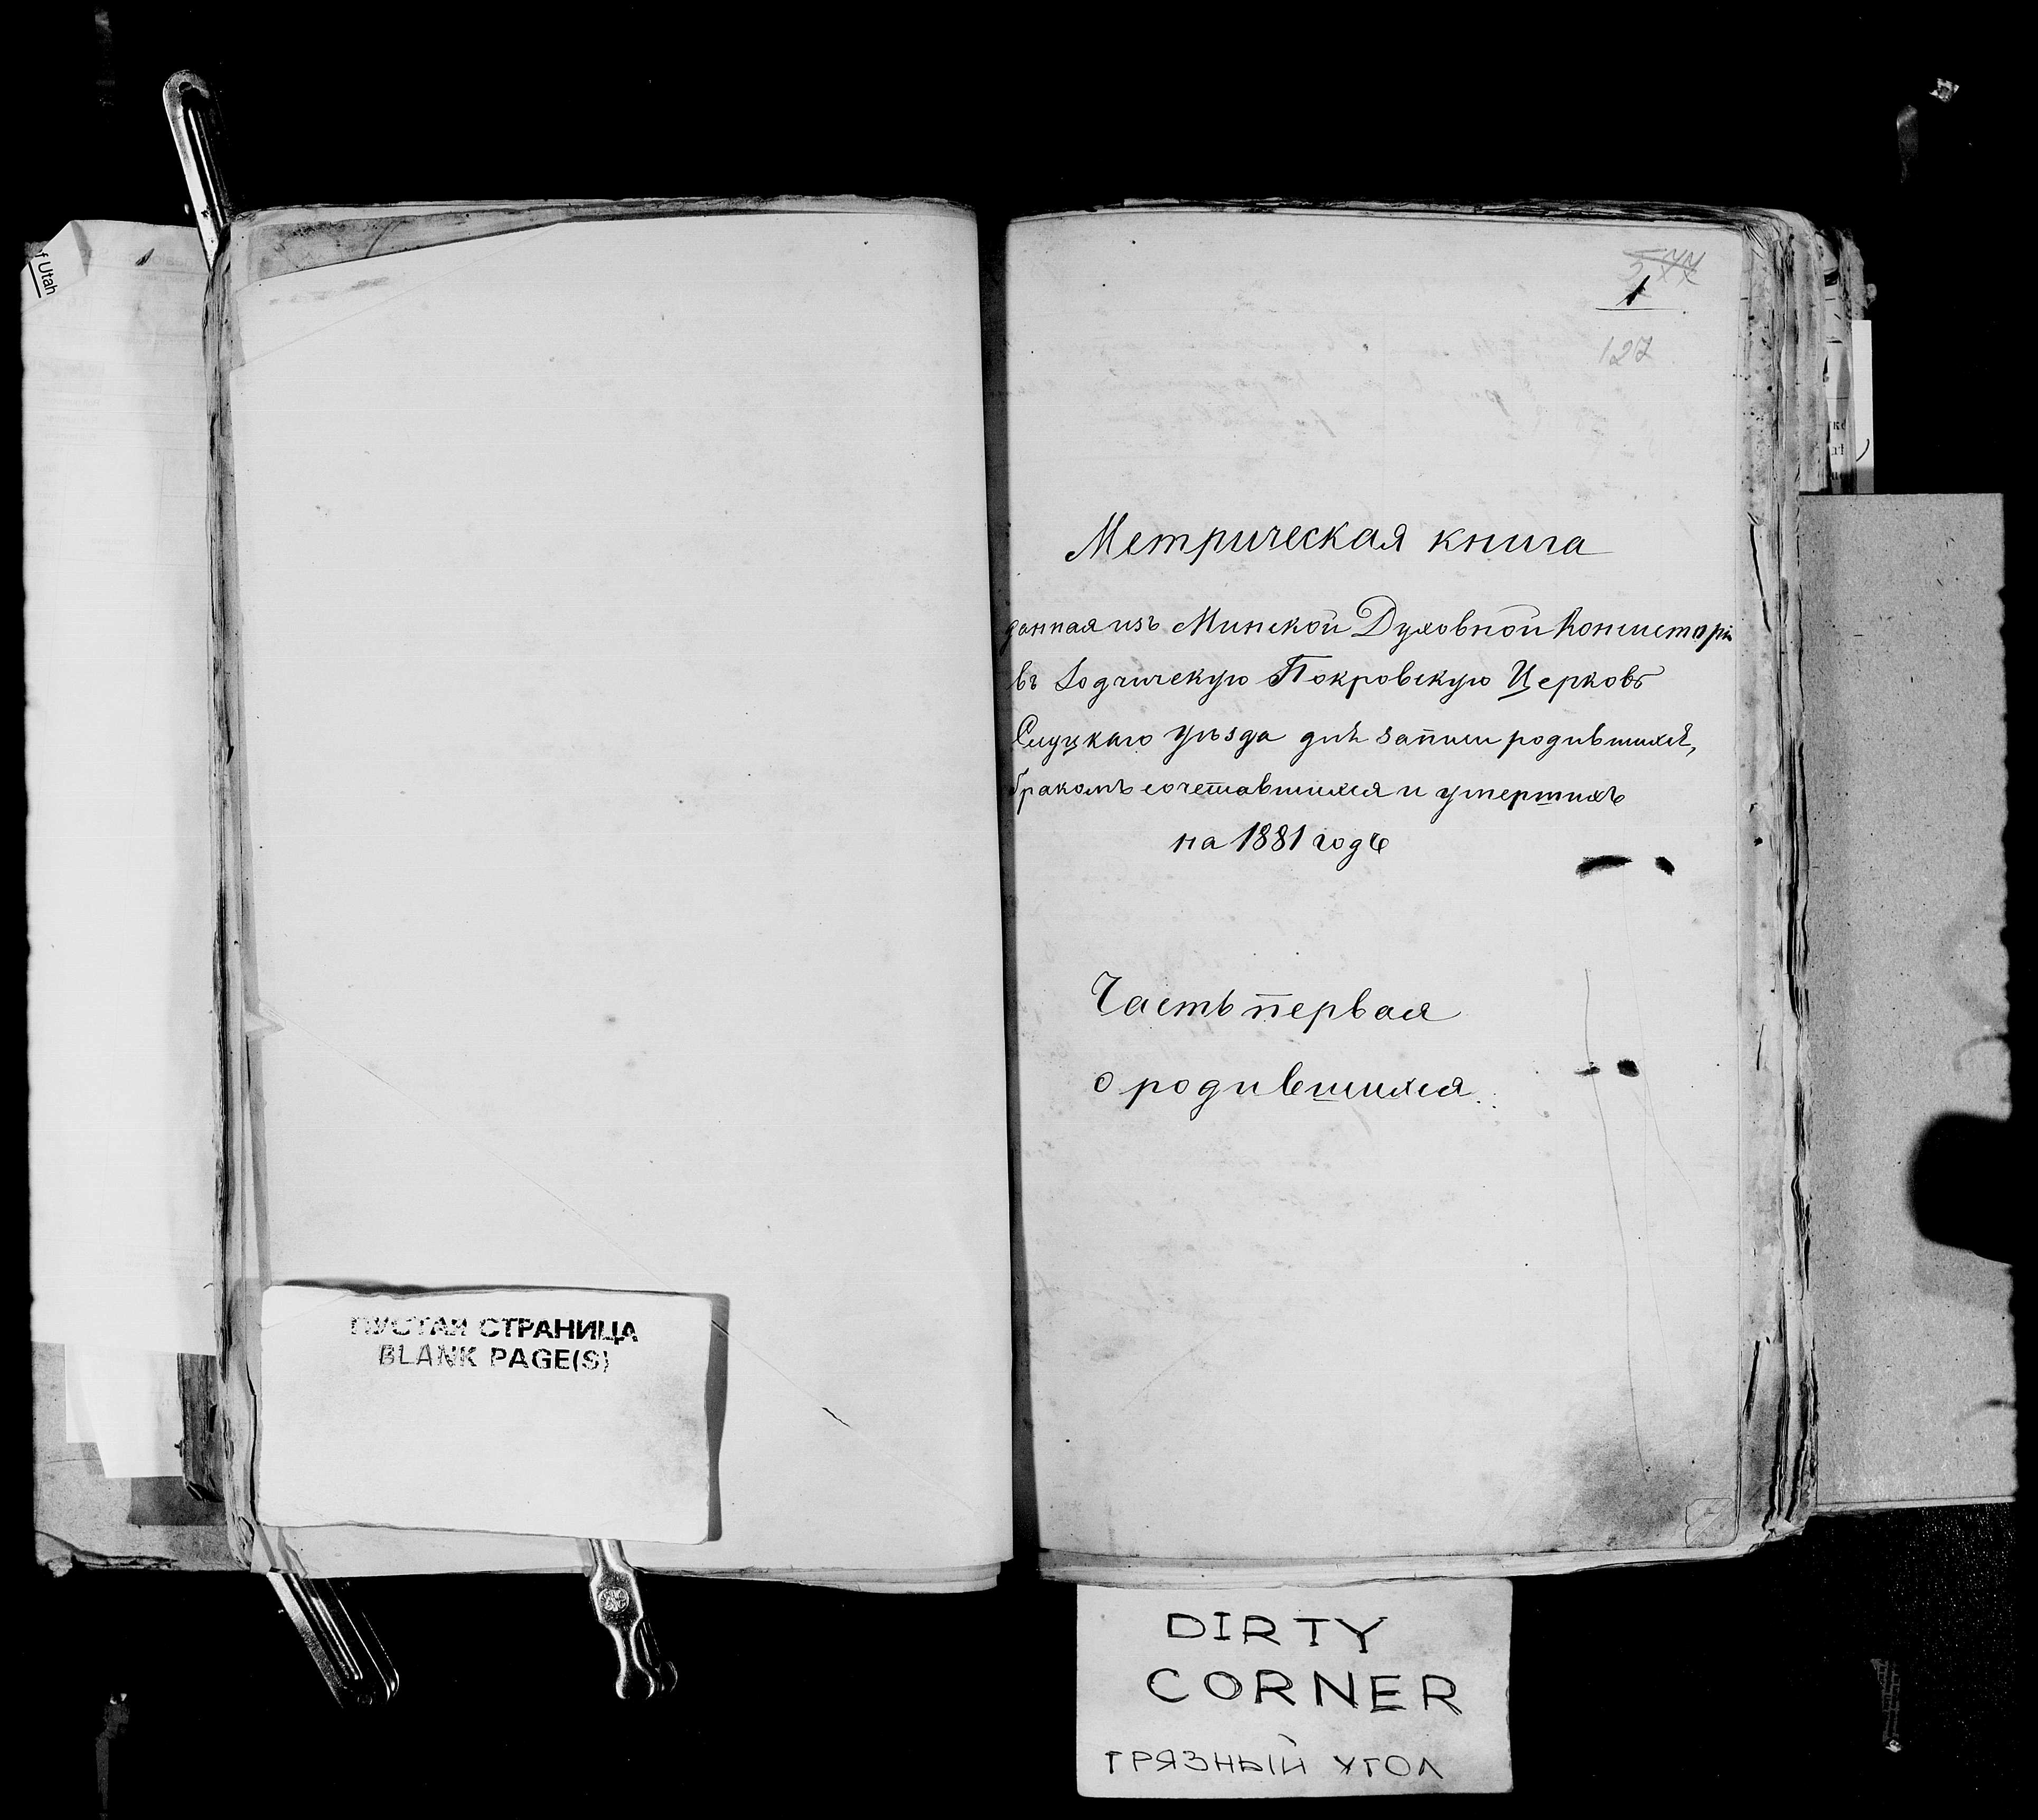 f Utah
ПУСТАЯ СТРАНИЦА
BLANK PAGE(S)
1
127
Метрическая книга
данная изъ Минской Духовной Консисторіи
въ Годчичскую Покровскую Церковь
Слуцкаго уѣзда для записи родившихся,
бракомъ сочетавшихся и умершихъ
на 1881 годъ
Часть первая
о родившихся.
DIRTY
CORNER
ГРЯЗНЫЙ УГОЛ